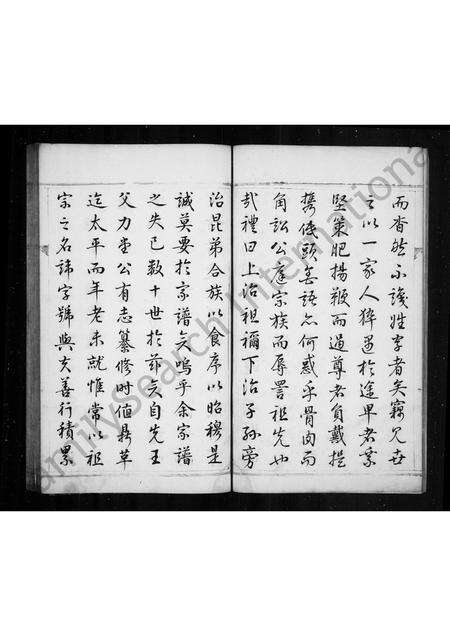 而杳然不識姓字者矣竊見世
之以一家人猝遇於途卑者乘
堅策肥揚鞭而過尊者負戴提
携低頭無語亦何惑乎骨肉而
角訟公庭宗族而辱詈祖先也
哉禮曰上治祖禰下治子孫旁
治昆弟合族以食序以昭穆是
誠莫要於家譜矣嗚乎余家譜
之失已数十世於茲矣自先王
父力堂公有志纂修时值鼎革
迄太平而年老未就惟常以祖
宗之名諱字號與夫善行積累
FamilySearch International